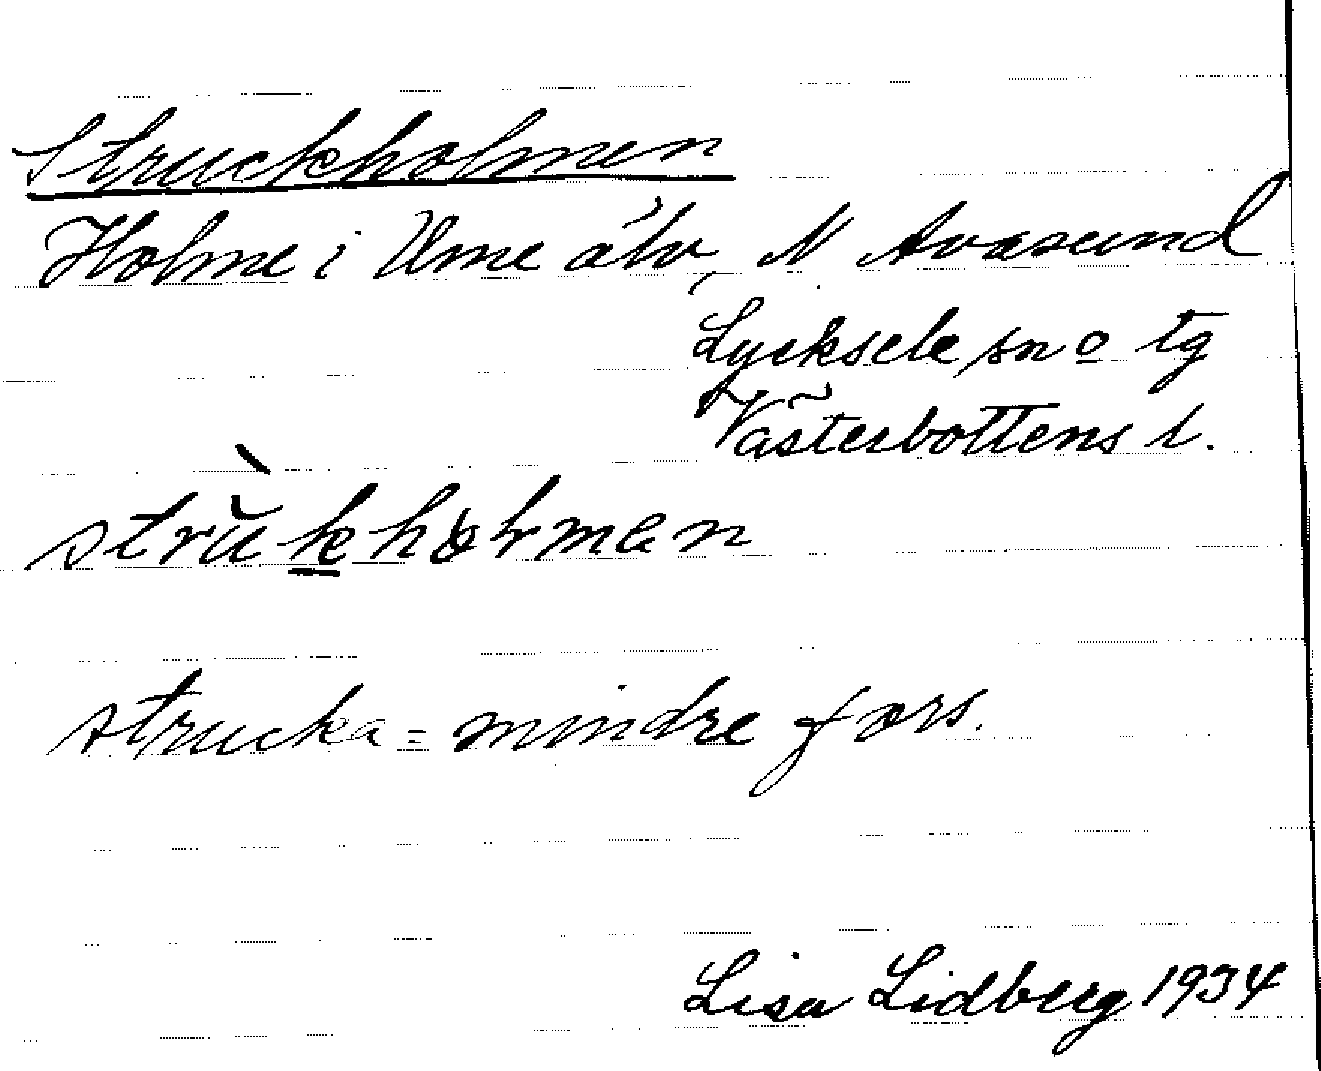 Struckholmen
Holme i Ume älv, N Avasund
Lycksele sn o tg
Västerbottens l.
strùkholmen
strucka = mindre fors.
Lisa Lidberg 1934